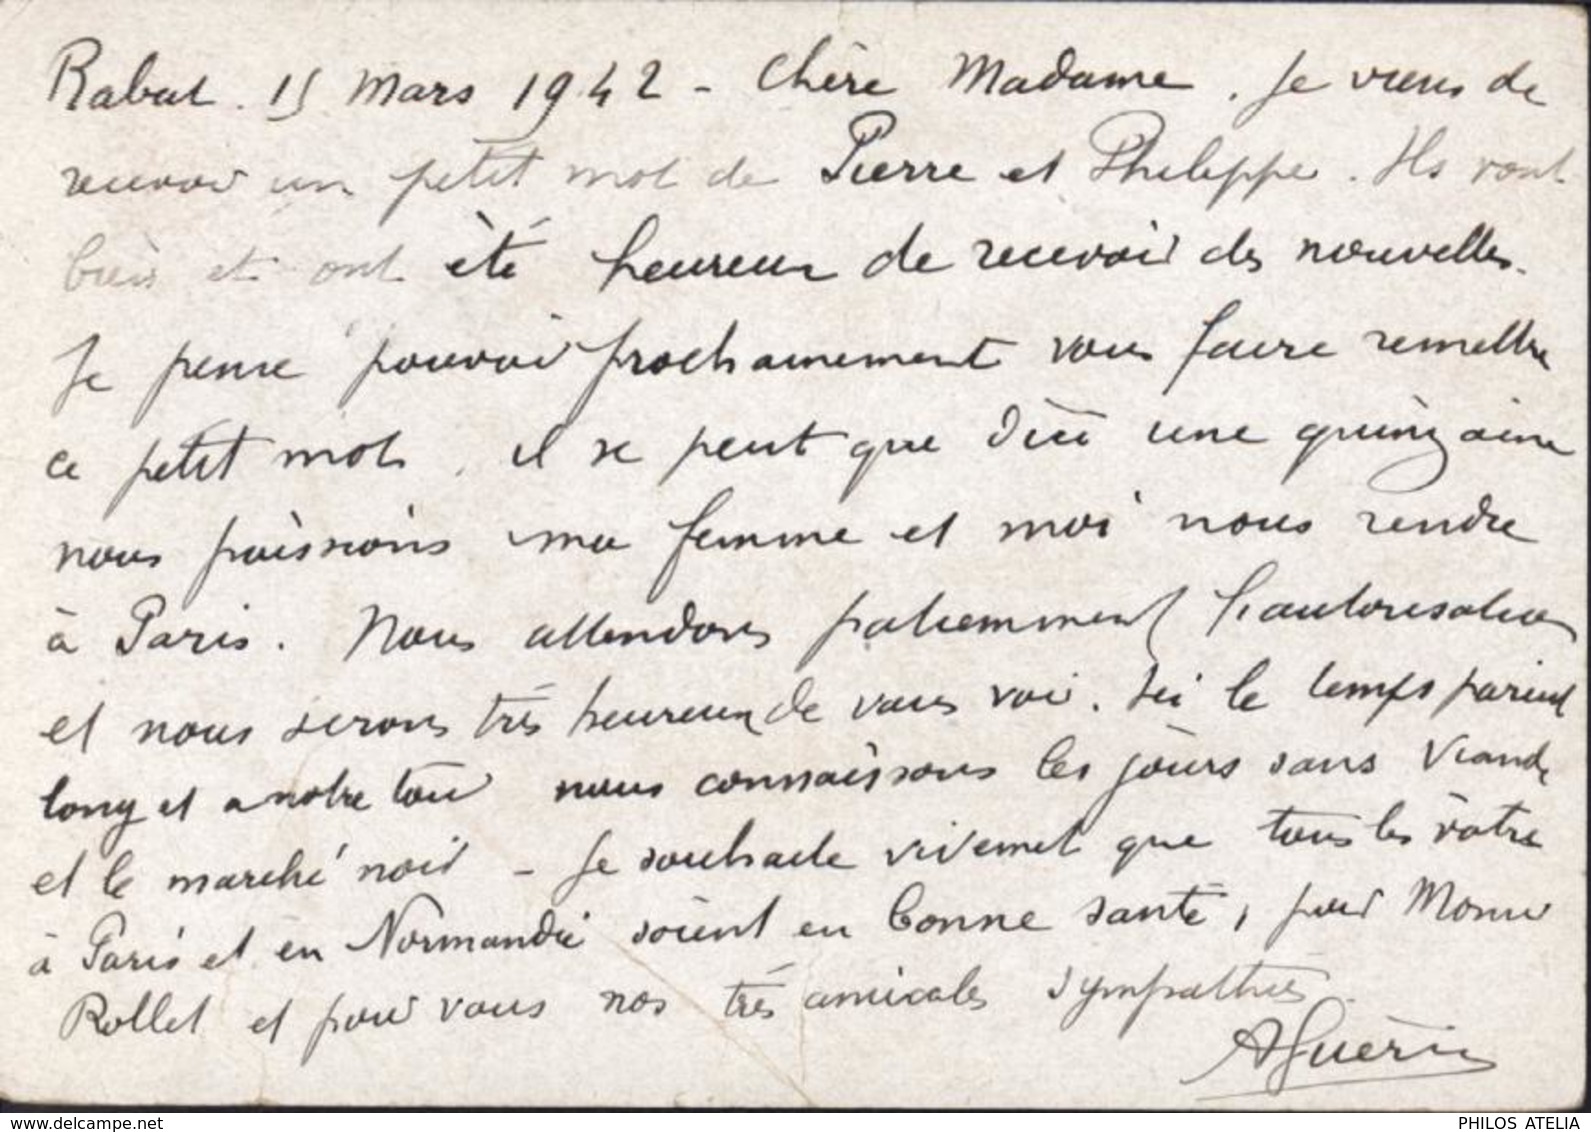 Rabat. 15 Mars 1942 - Chère Madame. Je viens de
recevoir un petit mot de Pierre et Philippe. Ils vont
bien et ont été heureux de recevoir des nouvelles.
Je pense pouvoir prochainement vous faire remettre
ce petit mot. il se peut que d'ici une quinzaine
nous puissions ma femme et moi nous rendre
à Paris. Nous attendons patiemment l'autorisation
et nous serons très heureux de vous voir. Ici le temps parait
long et a notre tour nous connaissons les jours sans viande
et le marché noir - Je souhaite vivement que tous les vôtres
à Paris et en Normandie soient en bonne santé, pour Monsieur
Rollet et pour vous nos très amicales sympathies.
AGuérin
www.delcampe.net
PHILOS ATELIA